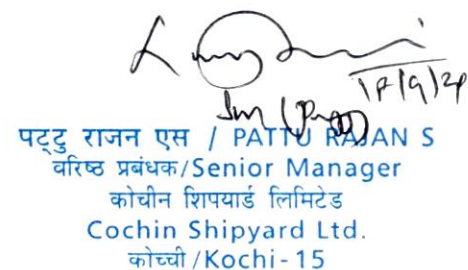 पट्टु राजन एस / PATTU RAJAN S
वरिष्ठ प्रबंधक/Senior Manager
कोचीन शिपयार्ड लिमिटेड
Cochin Shipyard Ltd.
कोच्ची /Kochi-15